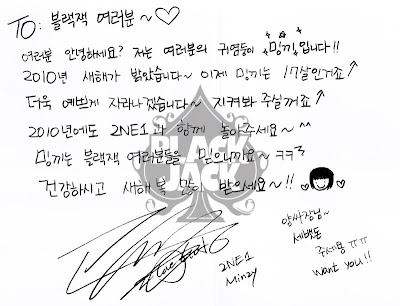 TO: 블랙잭 여러분~♡
여러분 안녕하세요? 저는 여러분의 귀염둥이 밍끼입니다!!
2010년 새해가 밝았습니다~ 이제 밍끼는 17살인거죠↑
더욱 예쁘게 자라나겠습니다~ 지켜봐 주실꺼죠↑
2010년에도 2NE1과 함께 놀아주세요~^^
밍끼는 블랙잭 여러분들을 믿으니까요~ㅋㅋㅋ
건강하시고 새해 복 많이 받으세요~!!
BLACK
JACK
2NE1
Minzy
양싸장님~
세뱃돈
주세용 ㅠㅠ
want you!!